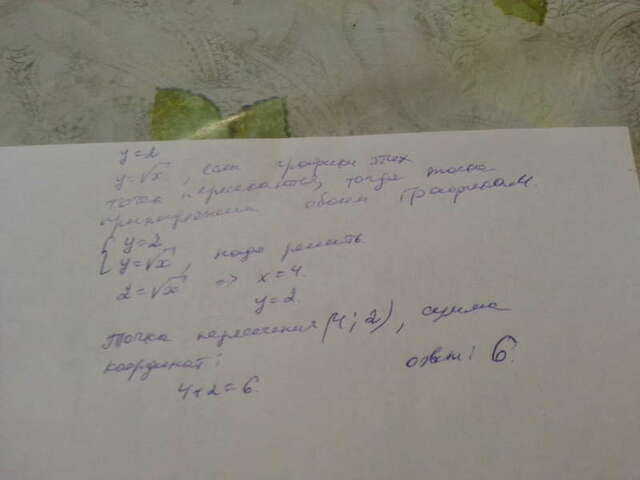 y=2
y=√x, если графики этих
точек пересекаются, тогда точка
принадлежит обоим графикам.
{ y=2
{ y=√x, надо решить
2=√x => x=4.
y=2.
Точка пересечения (4; 2), сумма
координат:
4+2=6.
ответ: 6.